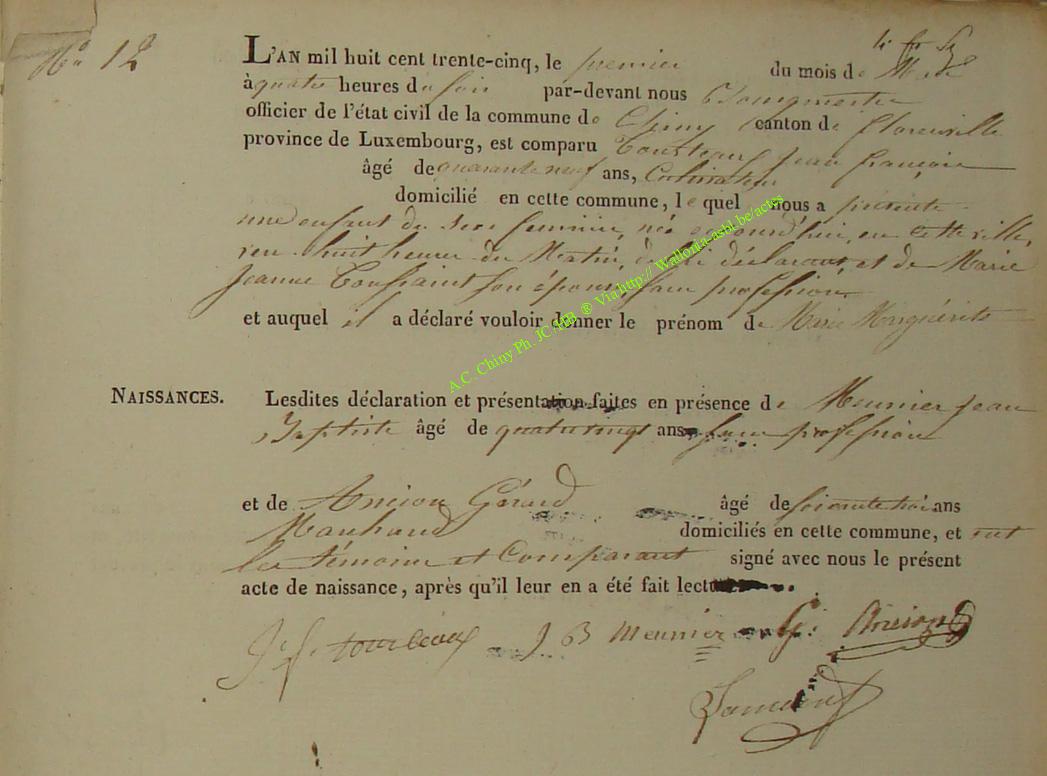 No 12
L'AN mil huit cent trente-cinq, le premier du mois de
à quatre heures du soir par-devant nous Bourgmestre
officier de l'état civil de la commune de Chiny canton de florenville
province de Luxembourg, est comparu Jean françois
âgé de quarante neuf ans, Cultivateur
domicilié en cette commune, lequel nous a présenté
une enfant du sexe feminin, née aujourd'hui, en cette ville,
huit heures du Matin, de lui déclarant, et de Marie
Jeanne Toussaint son épouse, sans profession
et auquel il a déclaré vouloir donner le prénom de Marie Marguérite
NAISSANCES. Lesdites déclaration et présentation faites en présence de Meunier Jean
Baptiste âgé de quatrevingt ans, sans profession
et de Ansion Gérard âgé de soixante trois ans
Marchand domiciliés en cette commune, et ont
les témoins et Comparant signé avec nous le présent
acte de naissance, après qu'il leur en a été fait lecture
J. f. J B Meunier G. Ansion
A.C. Chiny Ph. JC. ® Via http:// Wallonia-asbl.be/actes